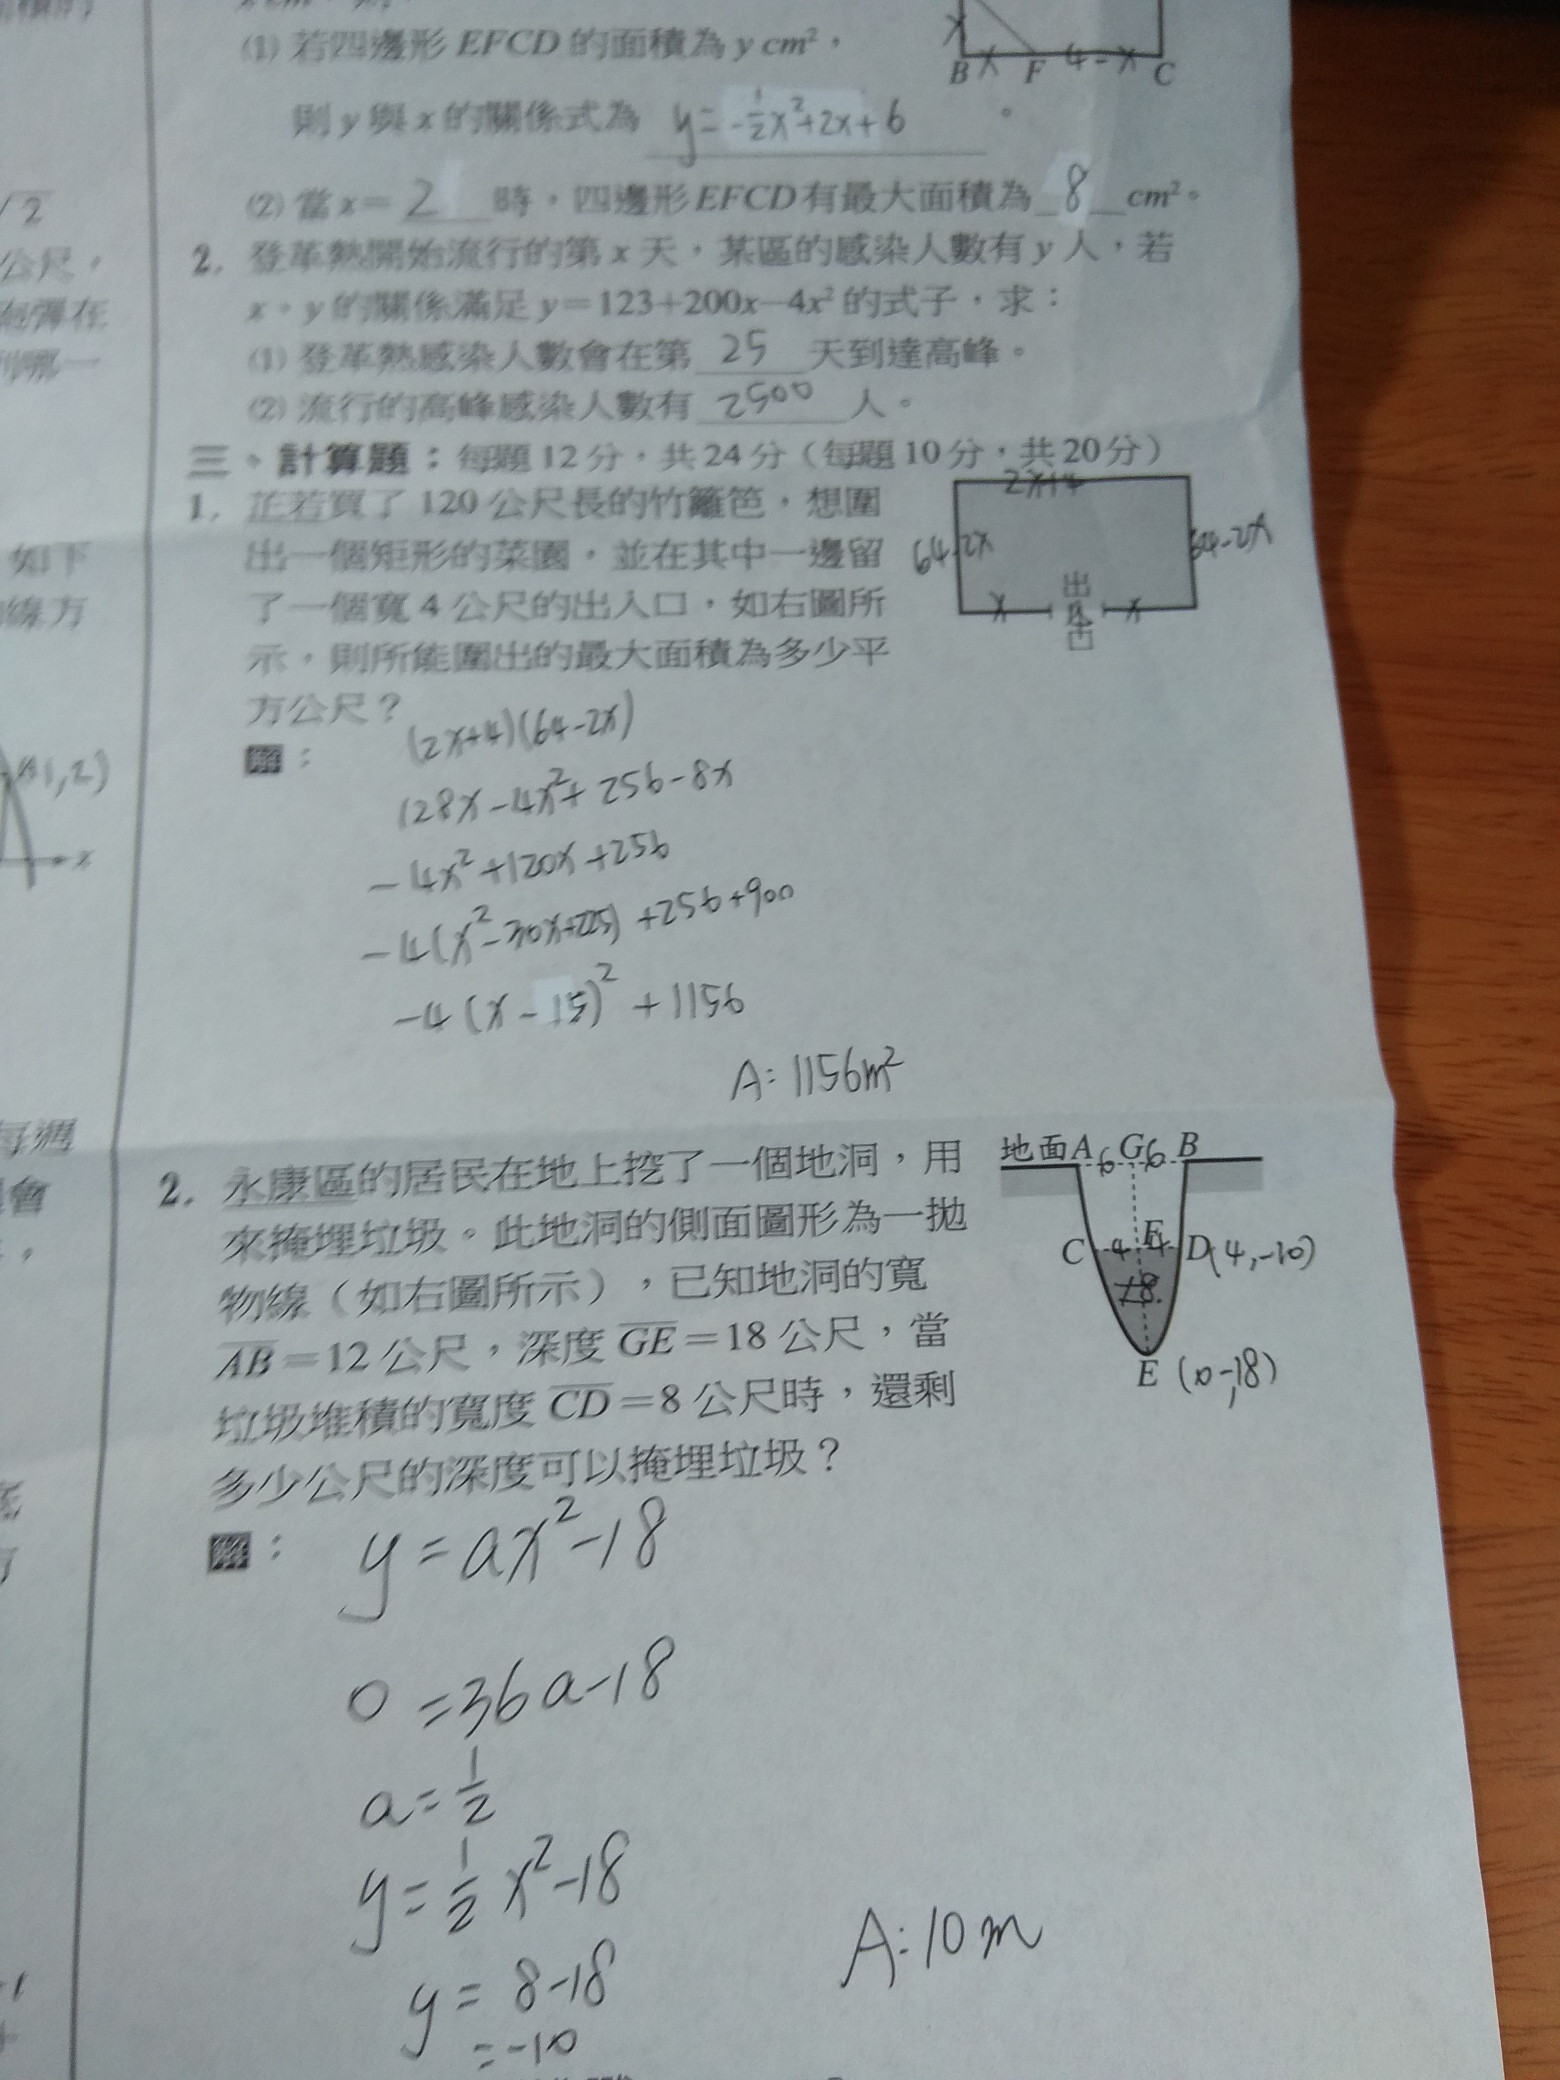 (1) 若四邊形 EFCD 的面積為 y cm²，
x
B x F 4-x C
則 y 與 x 的關係式為 y=-½x²+2x+6 。
(2) 當 x=2時，四邊形 EFCD 有最大面積為8cm²。
2. 登革熱開始流行的第 x 天，某區的感染人數有 y 人，若
x、y 的關係滿足 y=123+200x-4x² 的式子，求：
(1) 登革熱感染人數會在第25天到達高峰。
(2) 流行的高峰感染人數有2500人。
三、計算題：每題 12 分，共 24 分（每題 10 分，共 20 分）
1. 芷若買了 120 公尺長的竹籬笆，想圍
出一個矩形的菜園，並在其中一邊留
了一個寬 4 公尺的出入口，如右圖所
示，則所能圍出的最大面積為多少平
方公尺？
2x+4
64-2x
64-2x
x 出 口 x
解：
(2x+4)(64-2x)
128x-4x²+256-8x
-4x²+120x+256
-4(x²-30x+225)+256+900
-4(x-15)²+1156
A：1156m²
2. 永康區的居民在地上挖了一個地洞，用
來掩埋垃圾。此地洞的側面圖形為一拋
物線（如右圖所示），已知地洞的寬
AB=12 公尺，深度 GE=18 公尺，當
垃圾堆積的寬度 CD=8 公尺時，還剩
多少公尺的深度可以掩埋垃圾？
地面 A 6 G 6 B
C 4 F 4 D(4,-10)
18
E (0,-18)
解：
y=ax²-18
0=36a-18
a=½
y=½x²-18
y=8-18
=-10
A：10m
√2
公尺，
炮彈在
列哪一
如下
線方
(1,2)
x
每週
會